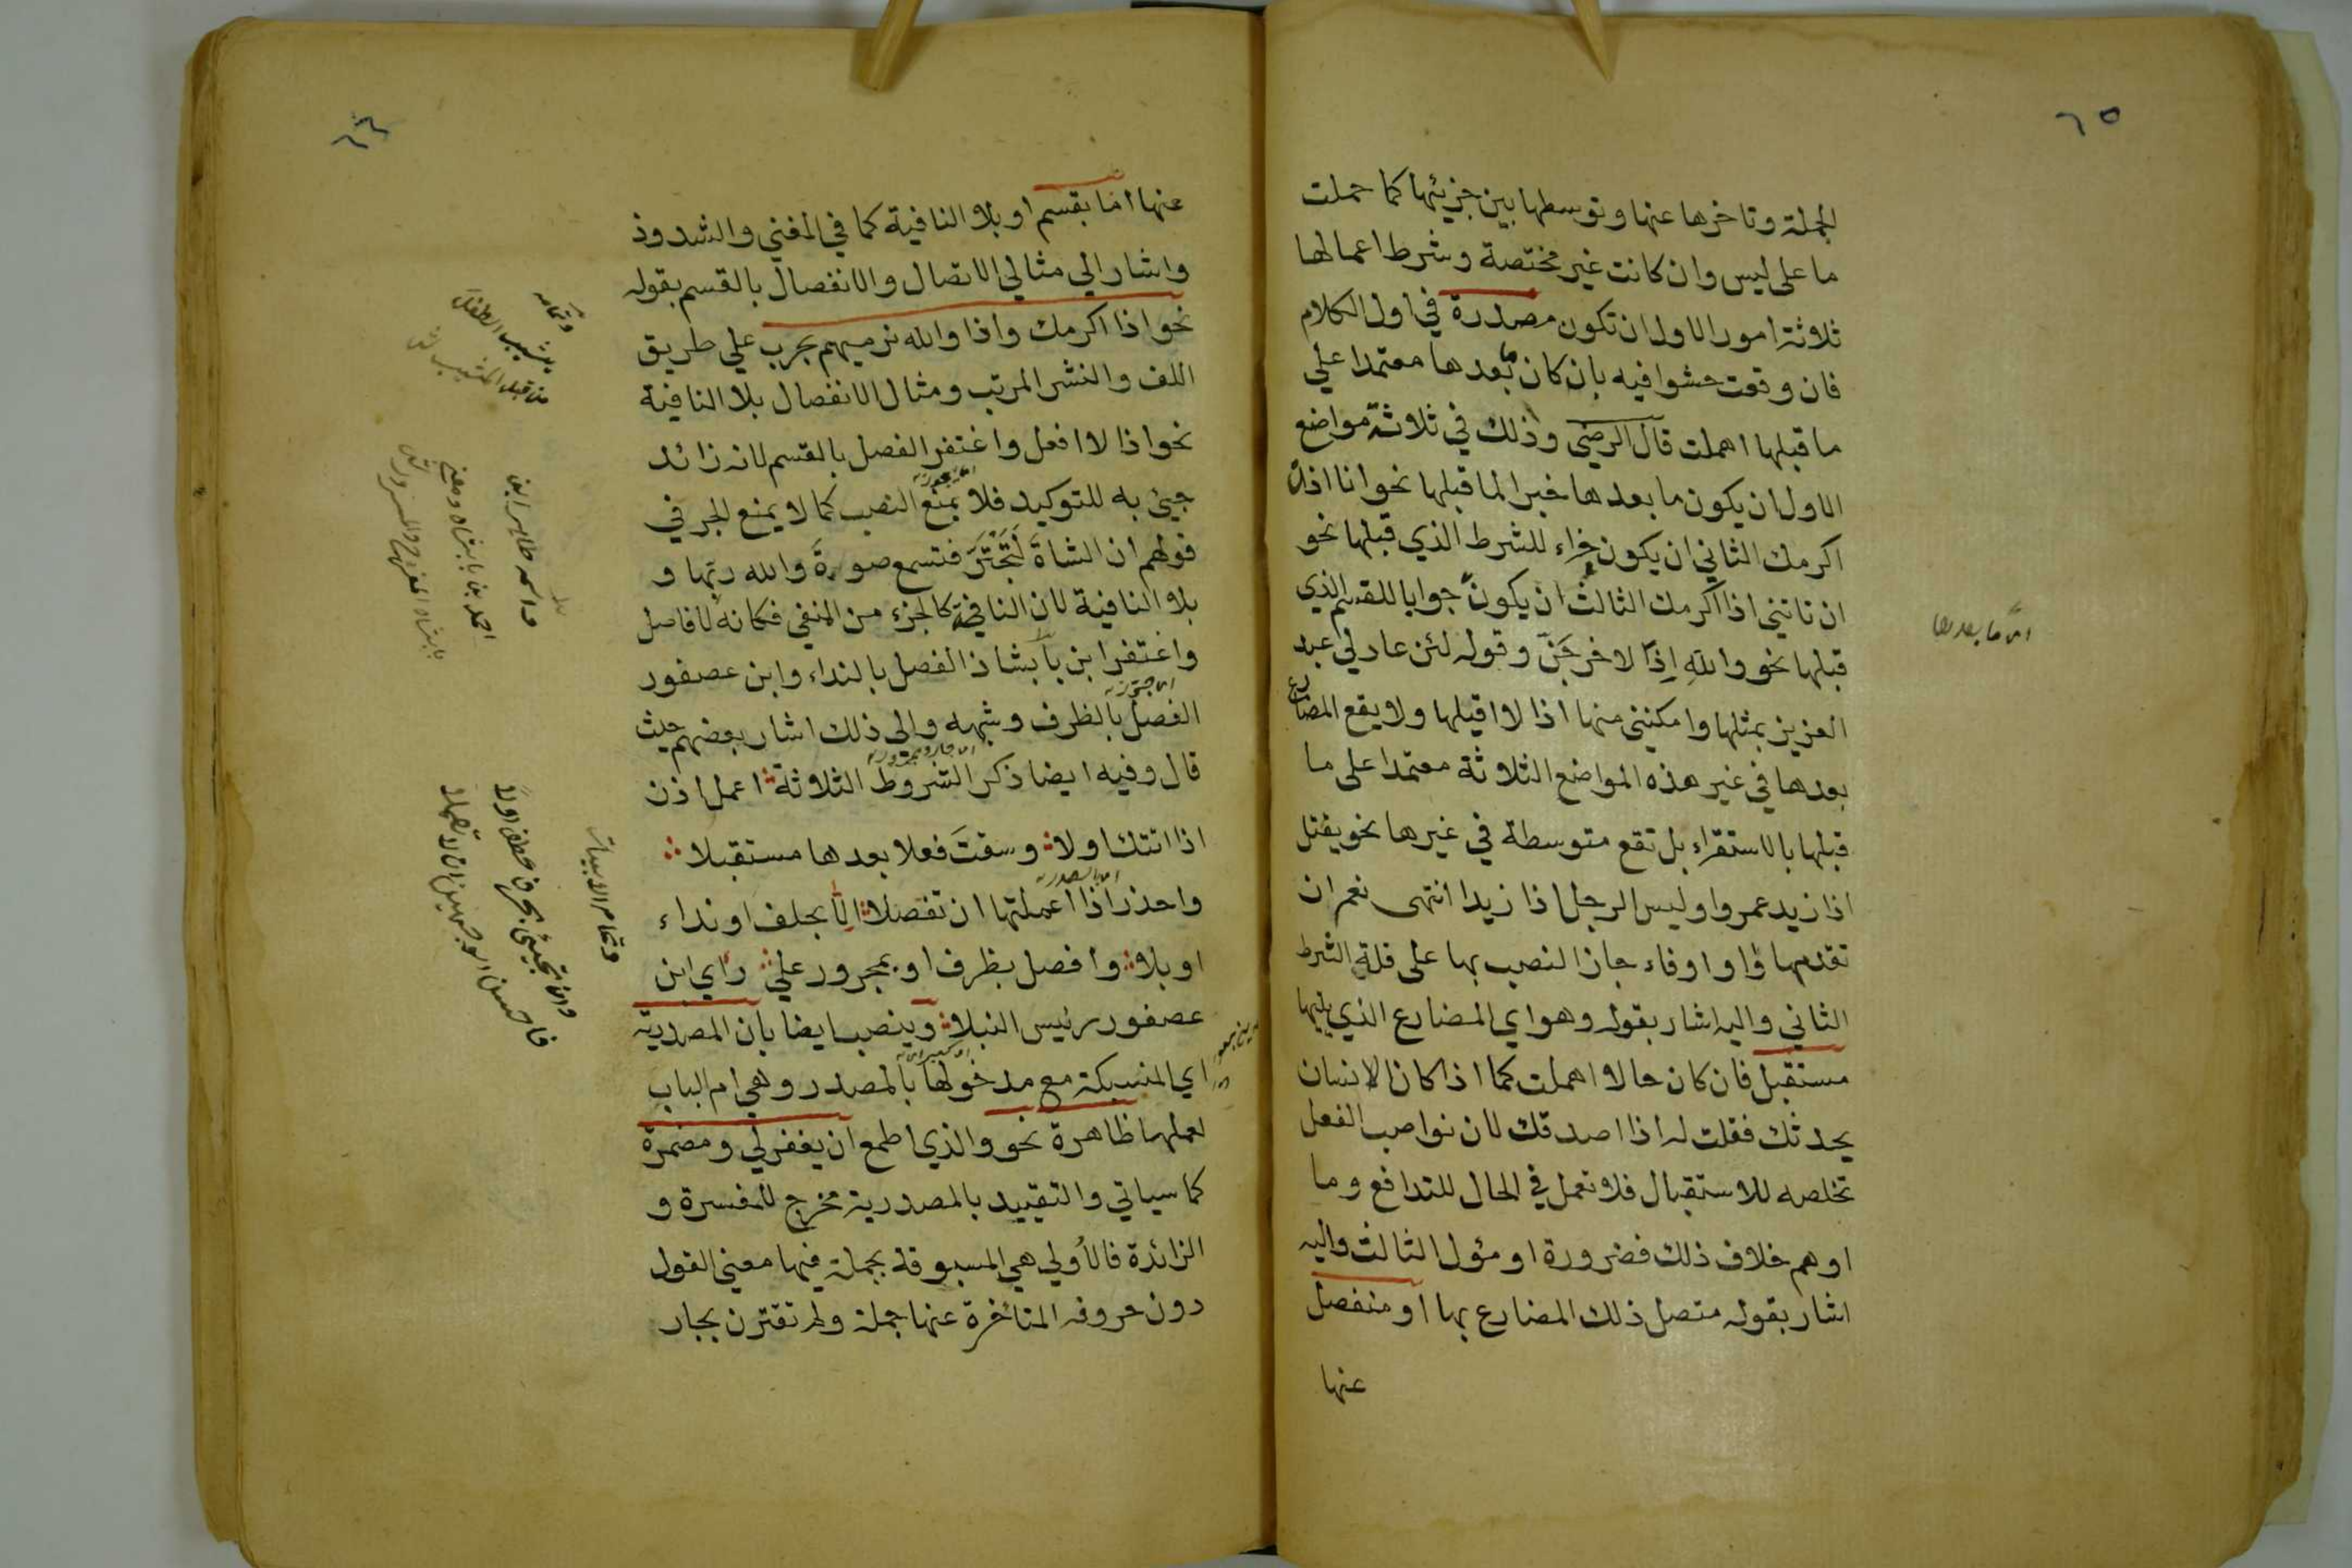 ٦٥
الجملة وتاخرها عنها وتوسطها بين جزئيها كما حملت
ما على ليس وان كانت غير مختصة وشرط اعمالها
ثلاثة امور الاول ان تكون مصدرة في اول الكلام
فان وقعت حشوا فيه بان كان ما بعدها معتمدا علي
ما قبلها اهملت قال الرضي وذلك في ثلاثة مواضع
الاول ان يكون ما بعدها خبرا لما قبلها نحو انا اذًا
اكرمك الثاني ان يكون جزاء للشرط الذي قبلها نحو
ان تاتني اذا اكرمك الثالث ان يكون جوابا للقسم الذي
قبلها نحو واللهِ اِذًا لاخرجَنّ وقوله لئن عاد لي عبد
العزيز بمثلها وامكنني منها اذا لا اقيلها ولا يقع المضارع
بعدها في غير هذه المواضع الثلاثة معتمدا على ما
قبلها بالاستقراء بل تقع متوسطة في غيرها نحو يقتل
اذا زيد عمروا وليس الرجل اذا زيدا انتهى نعم ان
تقدمها واو او فاء جاز النصب بها على قلة الشرط
الثاني واليه اشار بقوله وهو اي المضارع الذي يليها
مستقبل فان كان حالا اهملت كما اذا كان الانسان
يحدثك فقلت له اذا اصدقك لان نواصب الفعل
تخلصه للاستقبال فلا تعمل في الحال للتدافع وما
اوهم خلاف ذلك فضرورة او مؤول الثالث واليه
اشار بقوله متصل ذلك المضارع بها او منفصل
عنها
اى ما بعدها
٦٦
عنها اما بقسم او بلا النافية كما في المغني والشذور
واشار الي مثالي الاتصال والانفصال بالقسم بقوله
نحو اذا اكرمك واذا والله نرميهم بحرب علي طريق
اللف والنشر المرتب ومثال الانفصال بلا النافية
نحو اذا لا افعل واغتفر الفصل بالقسم لانه زائد
جيئ به للتوكيد فلا يمنع النصب كما لا يمنع الجر في
قولهم ان الشاةَ لَتَجْتَرّ فتسمع صوتَ والله ربّها و
بلا النافية لان النافية كالجزء من المنفي فكانه لا فاصل
واغتفر ابن بابشاذ الفصل بالنداء وابن عصفور
الفصل بالظرف وشبهه والى ذلك اشار بعضهم حيث
قال وفيه ايضا ذكر الشروط الثلاثة اعمل اذن
اذا اتتك اولا وسقتَ فعلا بعدها مستقبلا
واحذر اذا اعملتها ان تفصلا الّا بحلف او نداء
او بلا وافصل بظرف او بمجرور علي رأي ابن
عصفور رئيس النبلا وينصب ايضا بان المصدرية
اي المنسبكة مع مدخولها بالمصدر وهي ام الباب
لعملها ظاهرة نحو والذي اطمع ان يغفر لي ومضمرة
كما سياتي والتقييد بالمصدرية مخرج للمفسرة و
الزائدة فالأولي هي المسبوقة بجملة فيها معنى القول
دون حروفه المتأخرة عنها جملة ولم تقترن بجار
وتمامه
يشيب الطفل
من قبل المشيب
واسمه طاهر ابن
احمد بن بابشاذ
وتمام الابيات
وان تجيئ بحرف عطف اولا
فاحسن الوجهين ان لا تعملا